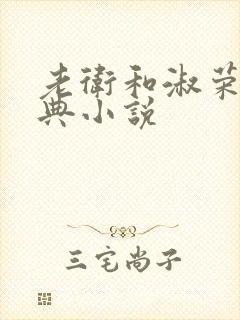 老衛和淑荣
典小説
三宅尚子